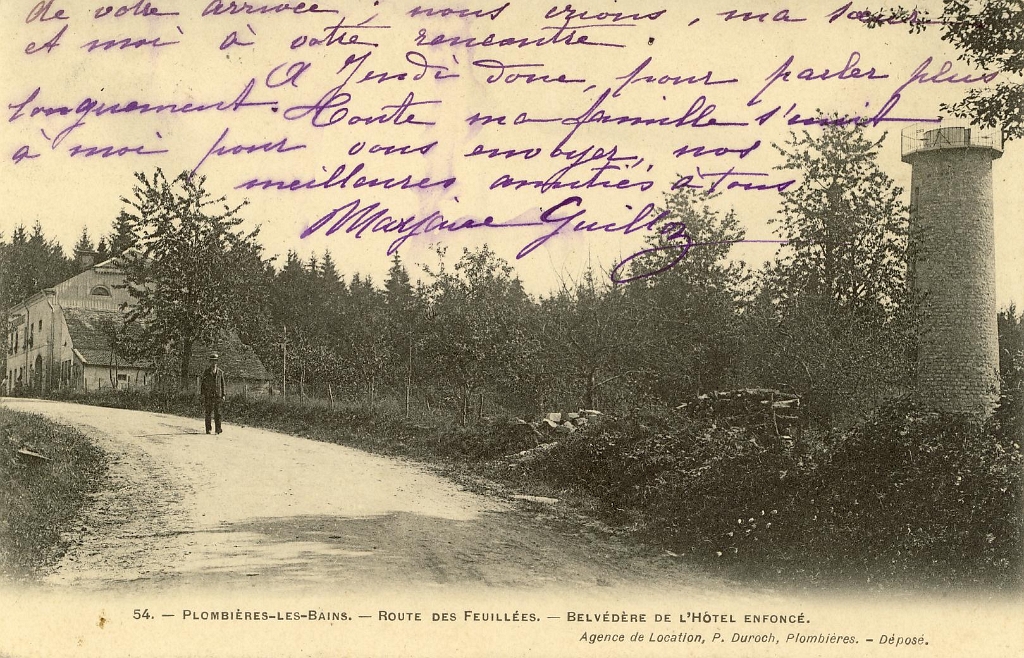 de votre arrivée ; nous irions, ma sœur
et moi à votre rencontre.
A Jeudi donc, pour parler plus
longuement. Toute ma famille s'unit
à moi pour vous envoyer, nos
meilleures amitiés à tous
Guillot
54. — PLOMBIÈRES-LES-BAINS. — ROUTE DES FEUILLÉES. — BELVÉDÈRE DE L'HÔTEL ENFONCÉ.
Agence de Location, P. Duroch, Plombières. — Déposé.